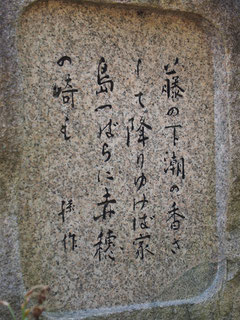 藤の下潮の香さ
して降りゆけば家
島つばらに赤穂
の崎も
孫作